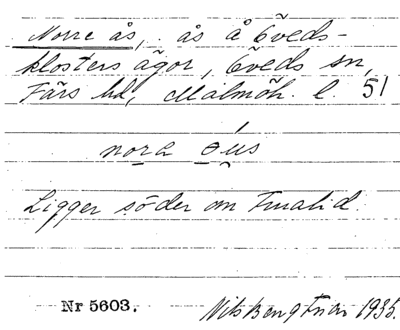 Norre ås, ås å Öveds-
klosters ägor, Öveds sn,
Färs hd, Malmöh. l. 51
nora óus
Ligger söder om Tualid.
Nr 5603. Nils Bengtsson 1935.